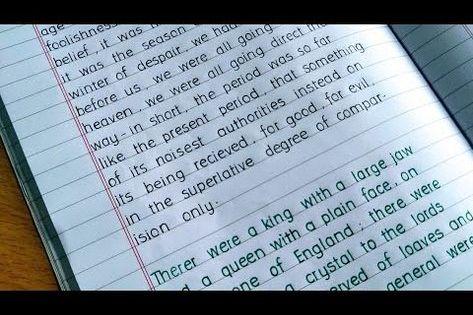 age
foolishness
belief, it was
it was the season
winter of despair, we had
before us, we were all going
heaven, we were all going direct the
way - in short, the period was so far
like the present period, that something
of its noisest authorities instead on
its being recieved, for good, for evil,
in the superlative degree of compar-
ision only.
Therer were a king with a large jaw
a queen with a plain face, on
one of England; there were
a crystal to the lords
of loaves and
general were